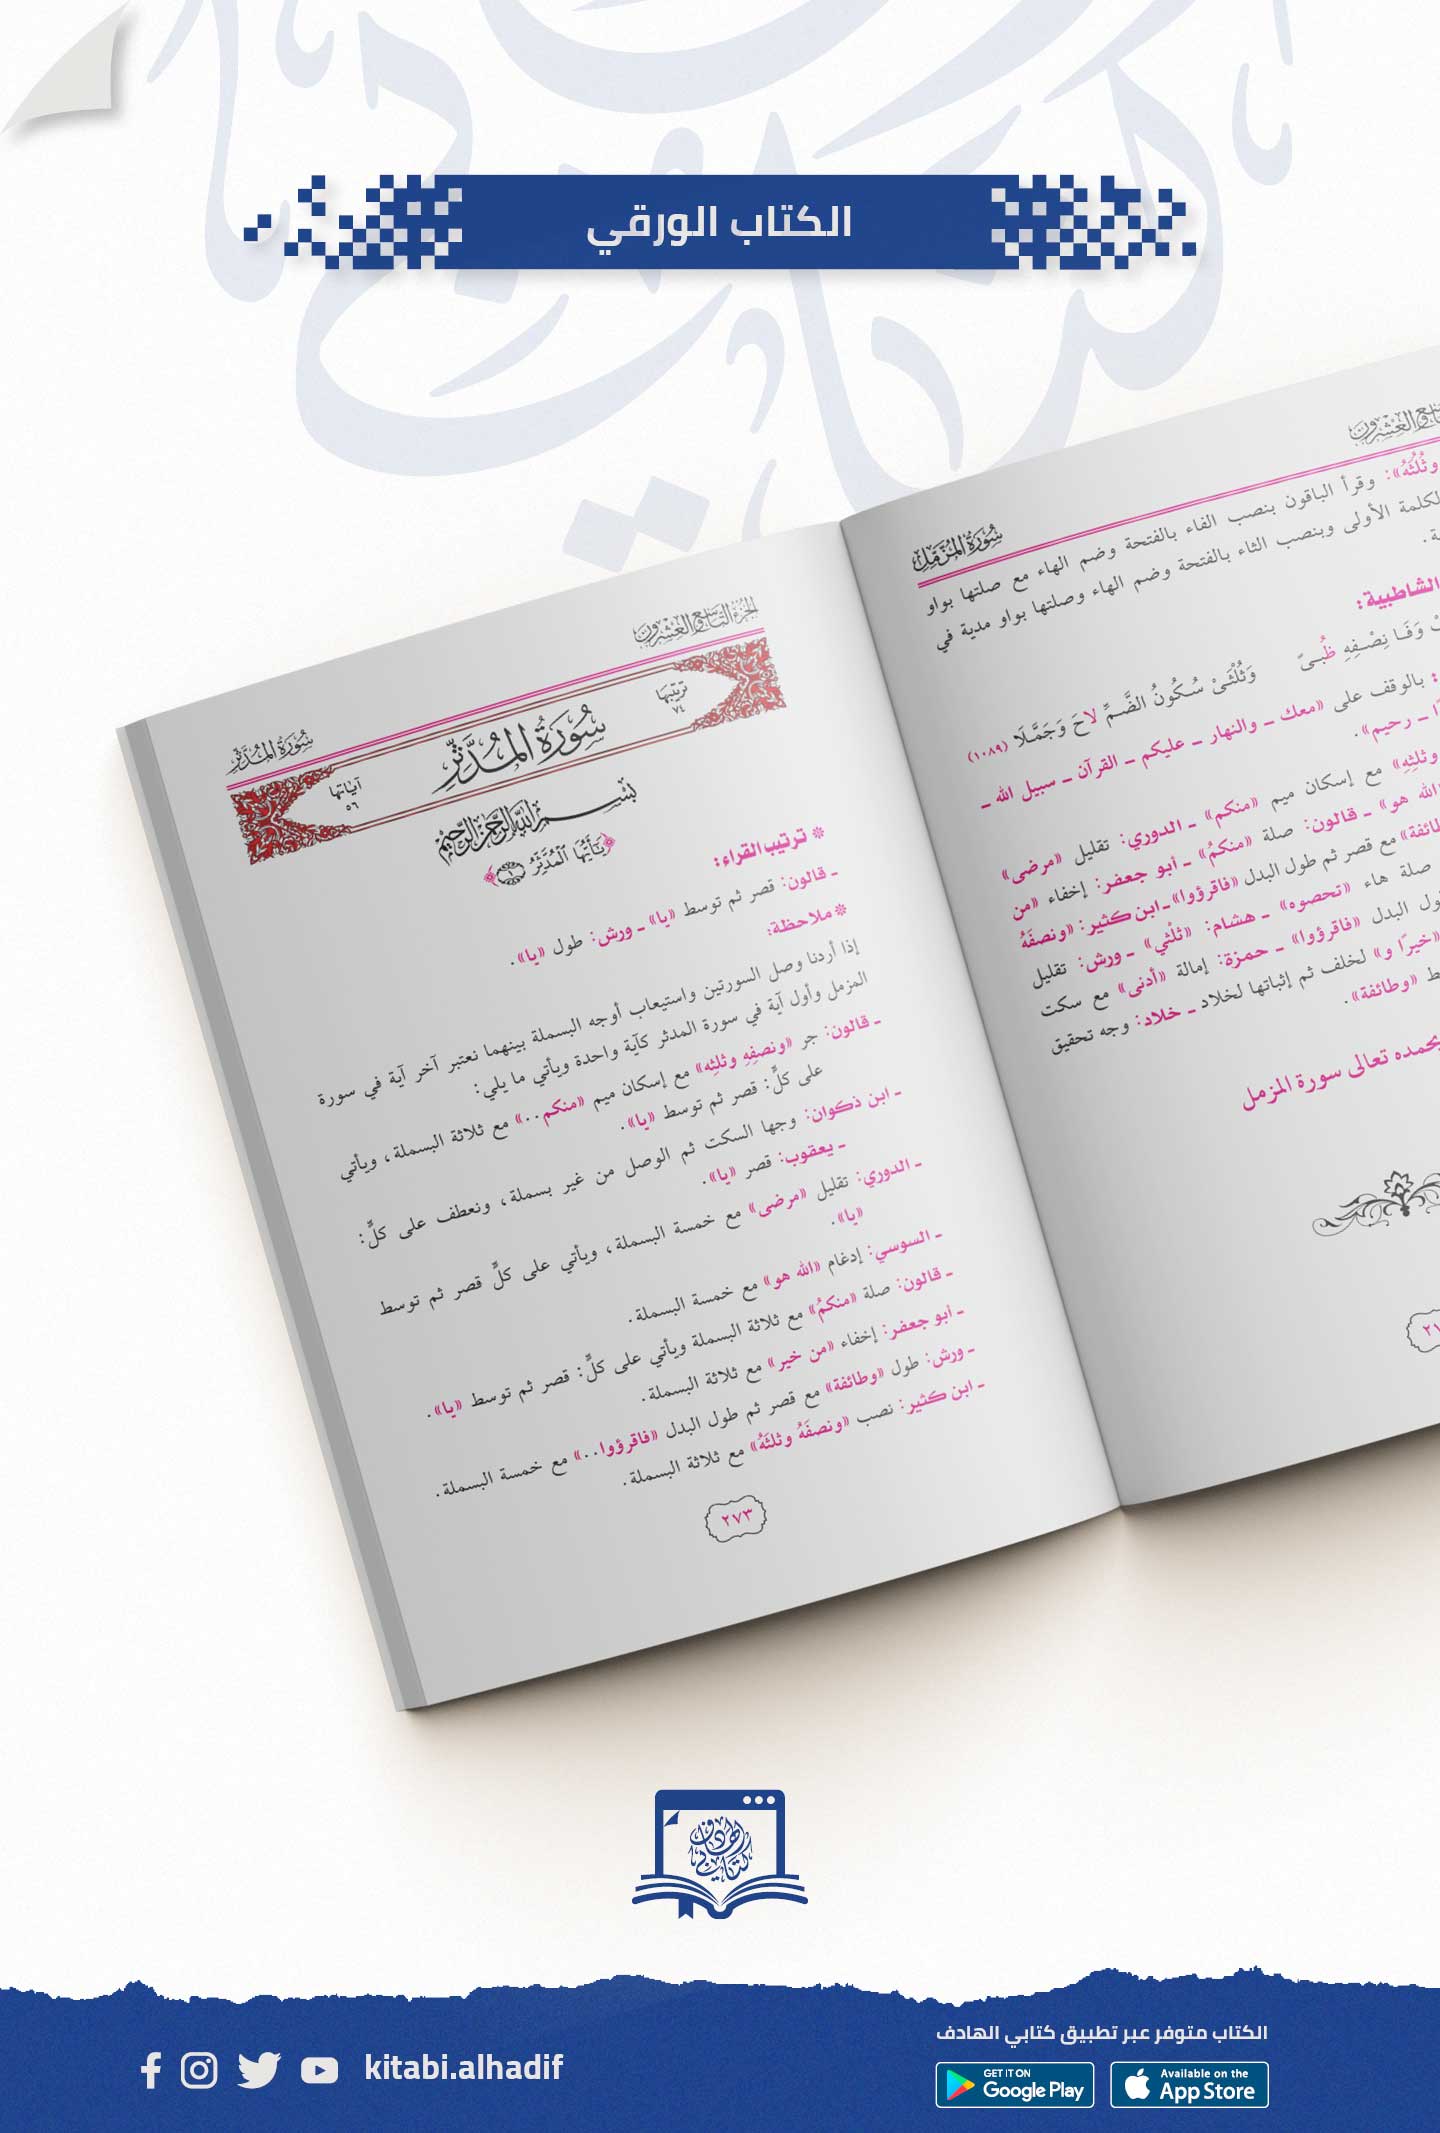 الكتاب الورقي
سُورَةُ المُزَّمِّل
وثُلُثَهُ»: وقرأ الباقون بنصب الفاء بالفتحة وضم الهاء مع صلتها بواو
الكلمة الأولى وبنصب الثاء بالفتحة وضم الهاء وصلتها بواو مدية في
الشاطبية:
وَفَا نِصْفِهِ ظُبىً وَثُلْثَيْ سُكُونُ الضَّمِّ لاحَ وَجَمَّلَا (١٠٨٩)
: بالوقف على «معك ـ والنهار ـ عليكم ـ القرآن ـ سبيل الله ـ
ـ رحيم».
وثلثِهِ» مع إسكان ميم «منكم» ـ الدوري: تقليل «مرضى»
الله هو» ـ قالون: صلة «منكمُ» ـ أبو جعفر: إخفاء «من
مع قصر ثم طول البدل «فاقرؤوا» ـ ابن كثير: «ونصفَهُ
صلة هاء «تحصوه» ـ هشام: «ثلْثي» ـ ورش: تقليل
البدل «فاقرؤوا» ـ حمزة: إمالة «أدنى» مع سكت
«خيرًا و» لخلف ثم إثباتها لخلاد ـ خلاد: وجه تحقيق
«وطائفة».
بحمده تعالى سورة المزمل
الجزء التاسع والعشرون
سُورَةُ المُدَّثِّر
ترتيبها ٧٤
سُورَةُ المُدَّثِّرِ
آياتها ٥٦
بسم الله الرحمن الرحيم
﴿يَٰٓأَيُّهَا ٱلۡمُدَّثِّرُ ١﴾
* ترتيب القراء:
ـ قالون: قصر ثم توسط «يا» ـ ورش: طول «يا».
* ملاحظة:
إذا أردنا وصل السورتين واستيعاب أوجه البسملة بينهما نعتبر آخر آية في سورة
المزمل وأول آية في سورة المدثر كآية واحدة ويأتي ما يلي:
ـ قالون: جر «ونصفِهِ وثلثِه» مع إسكان ميم «منكم..» مع ثلاثة البسملة، ويأتي
على كلٍّ: قصر ثم توسط «يا».
ـ ابن ذكوان: وجها السكت ثم الوصل من غير بسملة، ونعطف على كلٍّ:
ـ يعقوب: قصر «يا».
ـ الدوري: تقليل «مرضى» مع خمسة البسملة، ويأتي على كلٍّ قصر ثم توسط
«يا».
ـ السوسي: إدغام «الله هو» مع خمسة البسملة.
ـ قالون: صلة «منكمُ» مع ثلاثة البسملة ويأتي على كلٍّ: قصر ثم توسط «يا».
ـ أبو جعفر: إخفاء «من خير» مع ثلاثة البسملة.
ـ ورش: طول «وطائفة» مع قصر ثم طول البدل «فاقرؤوا..» مع خمسة البسملة.
ـ ابن كثير: نصب «ونصفَهُ وثلثَهُ» مع ثلاثة البسملة.
٢٧٣
كتابي الهادف
الكتاب متوفر عبر تطبيق كتابي الهادف
kitabi.alhadif
GET IT ON
Google Play
Available on the
App Store